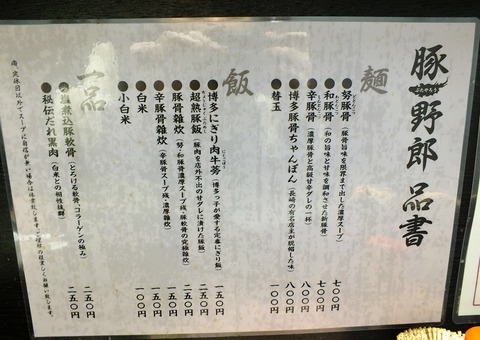 豚野郎 品書
麺
努豚骨（豚骨旨味を限界まで出した濃厚スープ） 七〇〇円
和豚骨（和の旨味と甘味を調和させた新豚骨） 七〇〇円
辛豚骨（濃厚豚骨と高級甘辛ダレの一杯） 八〇〇円
博多豚骨ちゃんぽん（長崎の有名店主が脱帽した味） 八〇〇円
替玉 一〇〇円
飯
博多にぎり肉牛蒡（博多っ子が愛する定番にぎり飯） 一五〇円
超熟豚飯（豚肉を店外不出の甘ダレに漬けた豚飯） 二五〇円
豚骨雑炊（努・和豚骨濃厚スープ残、豚軟骨の究極雑炊） 二五〇円
辛豚骨雑炊（辛豚骨スープ残、濃厚雑炊） 一五〇円
白米 一五〇円
小白米 一〇〇円
一品
塩煮込豚軟骨（とろける軟骨、コラーゲンの極み） 二五〇円
秘伝だれ黒肉（白米との相性抜群） 二五〇円
尚、定休日以外でスープに自信が無い場合は休業致します。ご理解の程宜しくお願い致します。